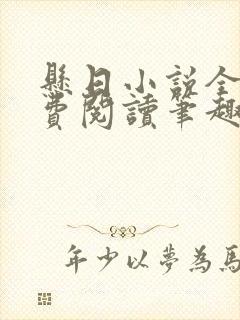 懸日小說全
費閱讀筆趣
年少以夢為馬